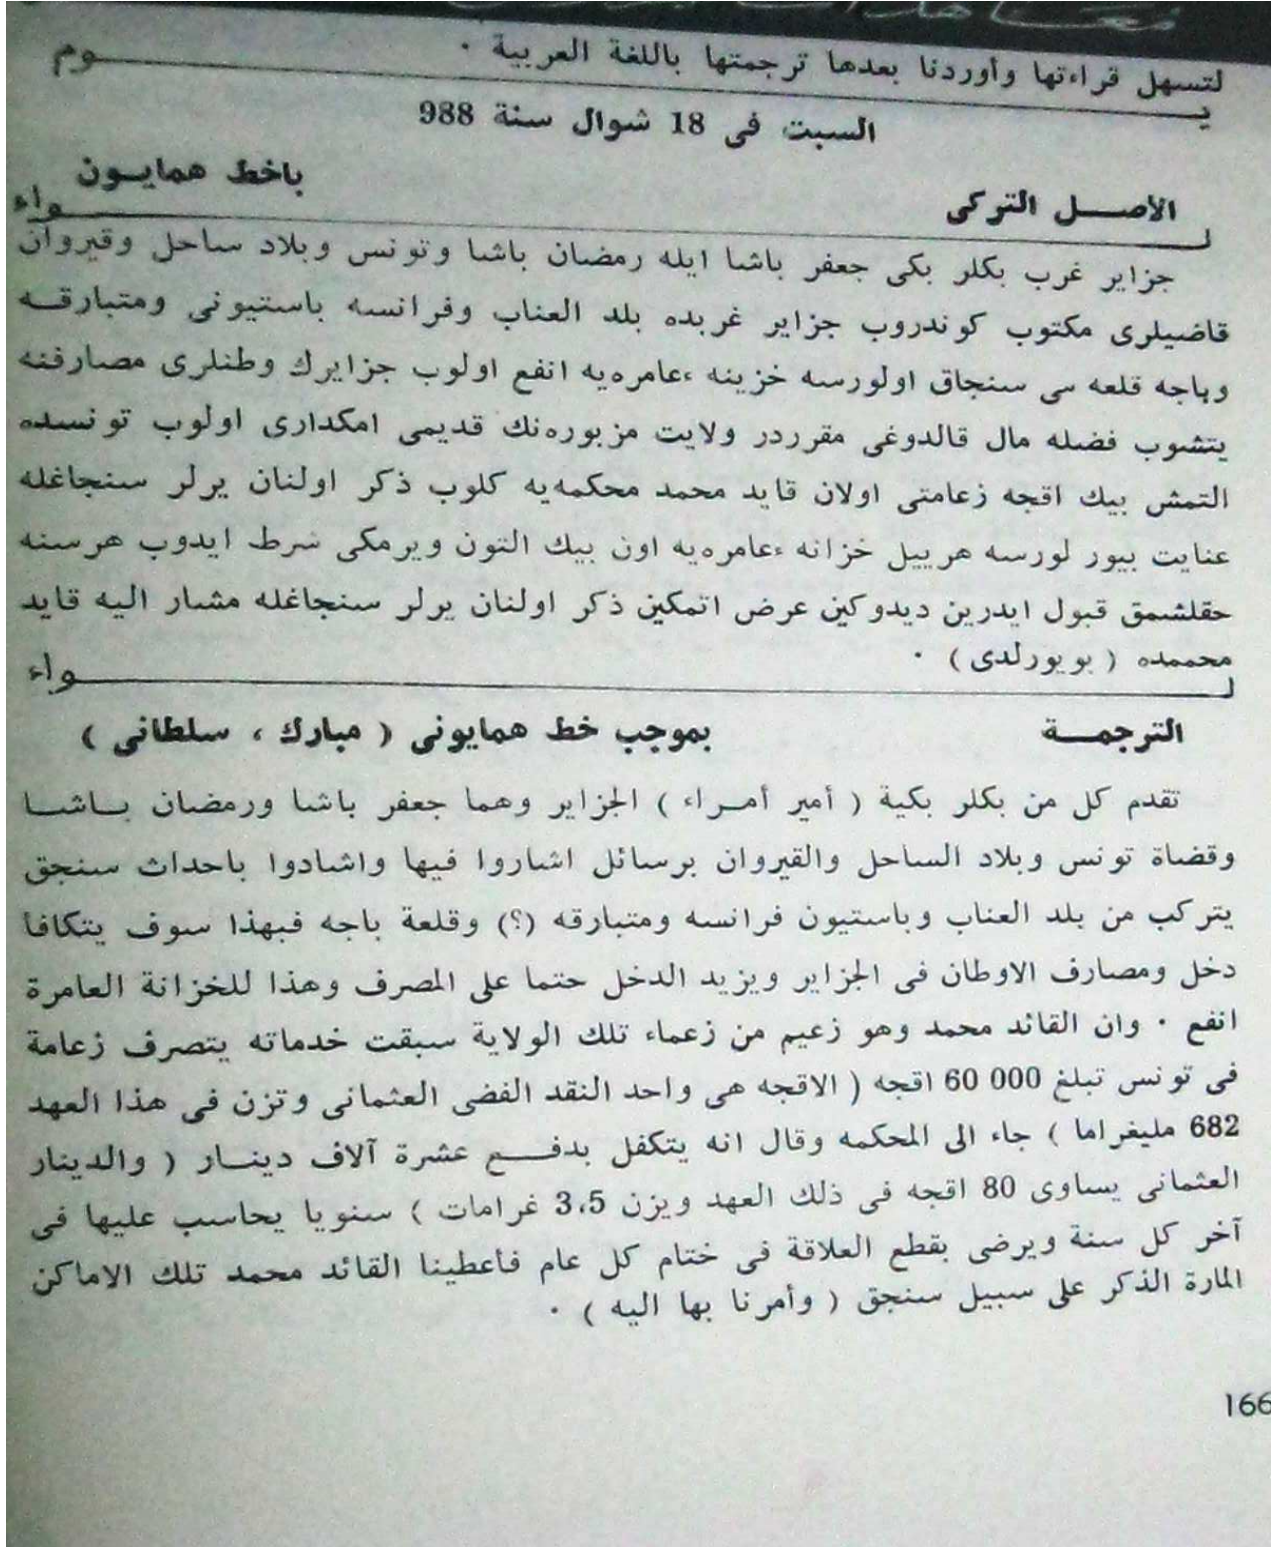 لتسهل قراءتها وأوردنا بعدها ترجمتها باللغة العربية ٠
يـــــــوم
السبت فى 18 شوال سنة 988
باخط همايــون
الاصـــل التركى
لـــــــواء
جزاير غرب بكلر بكى جعفر باشا ايله رمضان باشا وتونس وبلاد ساحل وقيروان
قاضيلرى مكتوب كوندروب جزاير غربده بلد العناب وفرانسه باستيونى ومتبارقــه
وباجه قلعه سى سنجاق اولورسه خزينه ءعامره‌يه انفع اولوب جزايرك وطنلرى مصارفنه
يتشوب فضله مال قالدوغى مقرردر ولايت مزبوره‌نك قديمى امكدارى اولوب تونسده
التمش بيك اقجه زعامتى اولان قايد محمد محكمه‌يه كلوب ذكر اولنان يرلر سنجاغله
عنايت بيور لورسه هرييل خزانه ءعامره‌يه اون بيك التون ويرمكى شرط ايدوب هرسنه
حقلشمق قبول ايدرين ديدوكين عرض اتمكين ذكر اولنان يرلر سنجاغله مشار اليه قايد
محممده ( بويورلدى ) ٠
لـــــــواء
الترجمــة
بموجب خط همايونى ( مبارك ، سلطانى )
تقدم كل من بكلر بكية ( أمير أمــراء ) الجزاير وهما جعفر باشا ورمضان بــاشــا
وقضاة تونس وبلاد الساحل والقيروان برسائل اشاروا فيها واشادوا باحداث سنجق
يتركب من بلد العناب وباستيون فرانسه ومتبارقه (؟) وقلعة باجه فبهذا سوف يتكافا
دخل ومصارف الاوطان فى الجزاير ويزيد الدخل حتما على المصرف وهذا للخزانة العامرة
انفع ٠ وان القائد محمد وهو زعيم من زعماء تلك الولاية سبقت خدماته يتصرف زعامة
فى تونس تبلغ 000 60 اقجه ( الاقجه هى واحد النقد الفضى العثمانى وتزن فى هذا العهد
682 مليغراما ) جاء الى المحكمه وقال انه يتكفل بدفــع عشرة آلاف دينــار ( والدينار
العثمانى يساوى 80 اقجه فى ذلك العهد ويزن 3،5 غرامات ) سنويا يحاسب عليها فى
آخر كل سنة ويرضى بقطع العلاقة فى ختام كل عام فأعطينا القائد محمد تلك الاماكن
المارة الذكر على سبيل سنجق ( وأمرنا بها اليه ) ٠
166